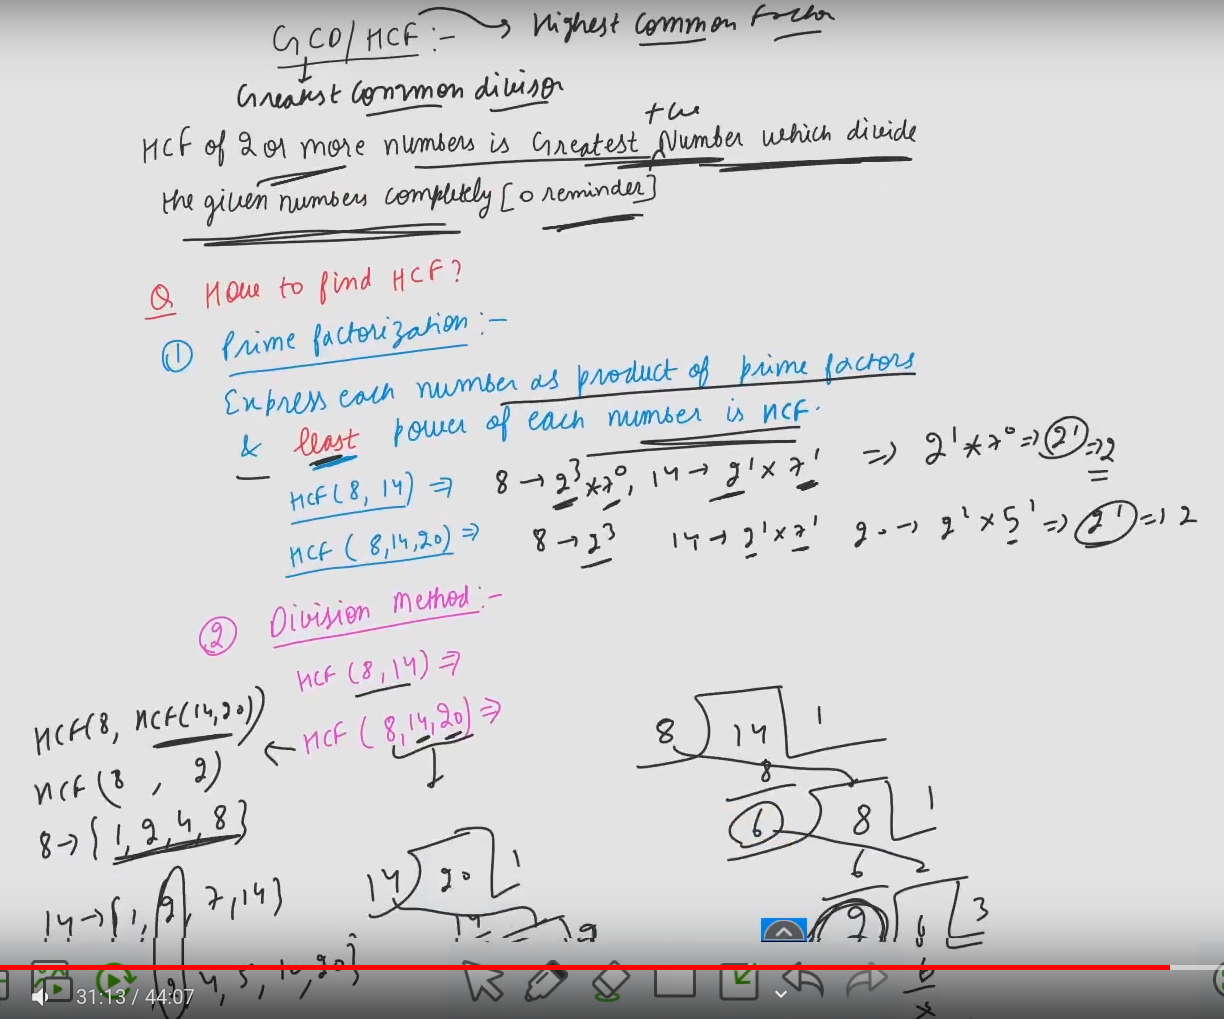 GCD/HCF :- → Highest Common Factor
Greatest Common divisor
+ve
HCF of 2 or more numbers is Greatest Number which divide
the given numbers completely [0 reminder]
Q How to find HCF?
① Prime factorization :-
Express each number as product of prime factors
& least power of each number is HCF.
HCF(8, 14) ⇒ 8 → 2³ * 7⁰, 14 → 2¹ × 7¹ ⇒ 2¹ * 7⁰ ⇒ 2¹ ⇒ 2
HCF(8,14,20) ⇒ 8 → 2³ 14 → 2¹ × 7¹ 20 → 2¹ × 5¹ ⇒ 2¹ ⇒ 2
② Division Method :-
HCF (8,14) ⇒
HCF (8,14,20) ⇒
HCF(8, HCF(14,20))
HCF(8, 2)
8 → {1, 2, 4, 8}
14 → {1, 2, 7, 14}
2, 4, 5, 10, 20}
14 ) 20 ( 1
14
8 ) 14 ( 1
8
6 ) 8 ( 1
6
2 ) 6 ( 3
6
x
31:13 / 44:07